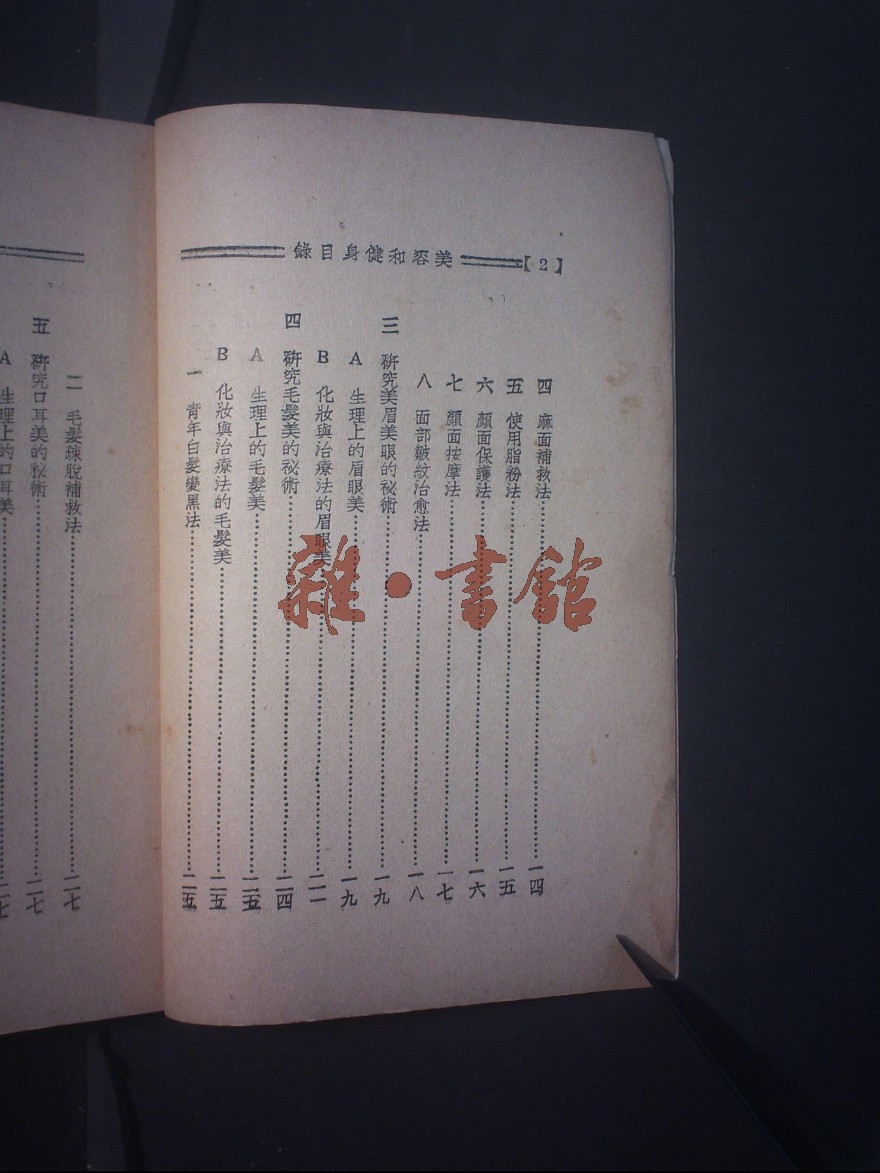 【2】 美容和健身目錄
四 麻面補救法 一四
五 使用脂粉法 一五
六 顏面保護法 一六
七 顏面按摩法 一七
八 面部皺紋治愈法 一八
三 硏究美眉美眼的祕術 一九
A 生理上的眉眼美 一九
B 化妝與治療法的眉眼美 二一
四 硏究毛髮美的祕術 二四
A 生理上的毛髮美 二五
B 化妝與治療法的毛髮美 二五
一 青年白髮變黑法 二五
二 毛髮疎脫補救法 二七
五 硏究口耳美的秘術 二七
A 生理上的口耳美 二七
雜·書館